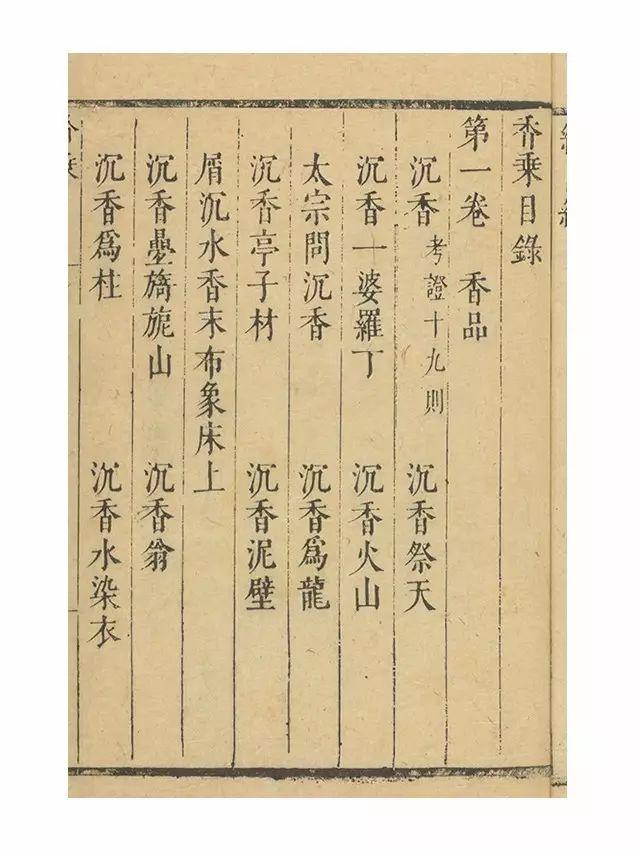 香乘目錄
第一卷 香品
沉香 考證十九則 沉香祭天
沉香一婆羅丁 沉香火山
太宗問沉香 沉香爲龍
沉香亭子材 沉香泥壁
屑沉水香末布象床上
沉香疊旖旎山 沉香翁
沉香爲柱 沉香水染衣